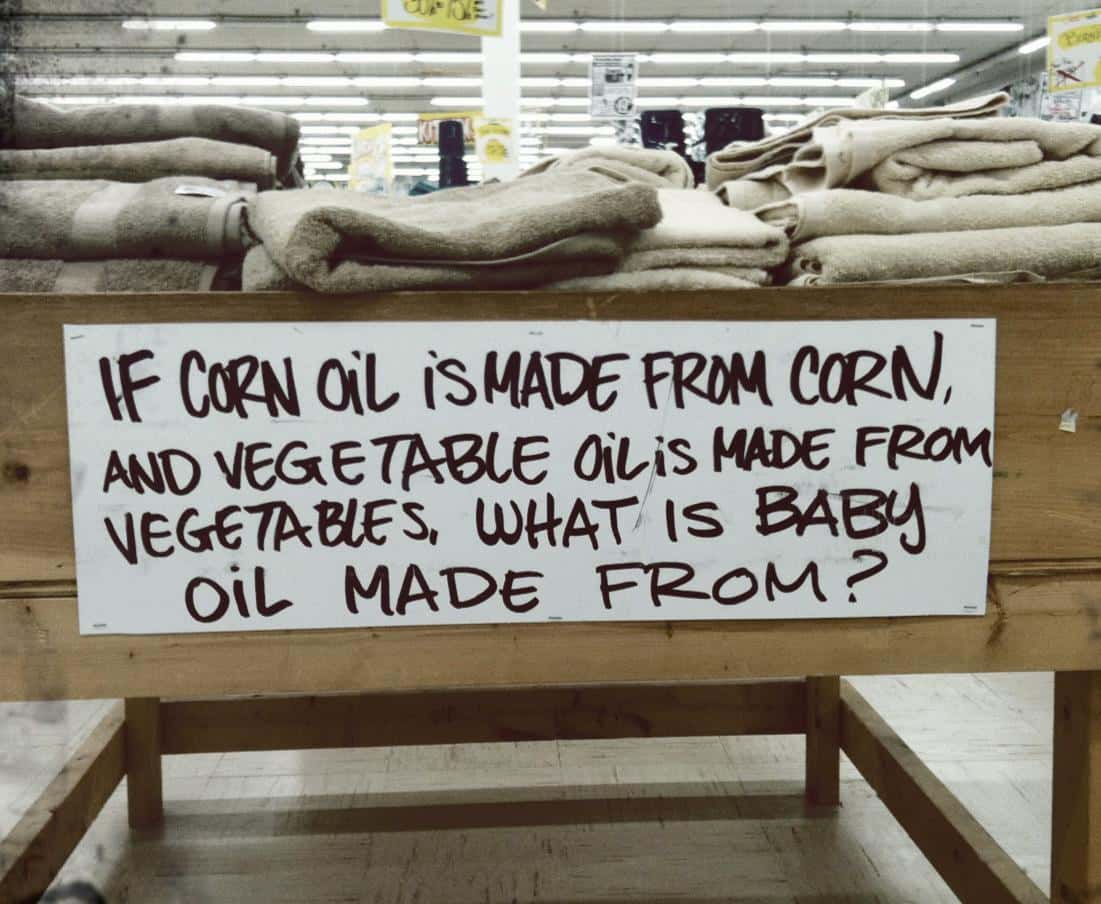 IF CORN OiL iS MADE FROM CORN,
AND VEGETABLE OiL is MADE FROM
VEGETABLES. WHAT IS BABY
OiL MADE FROM?